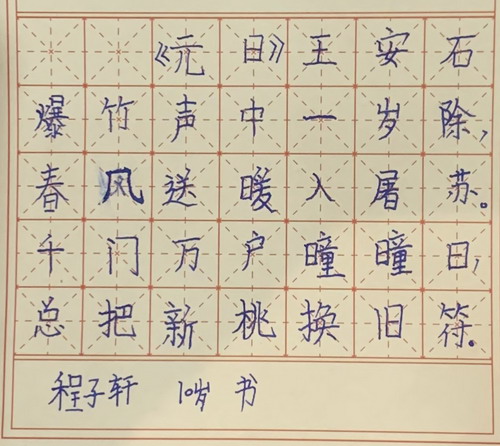 《元日》王安石
爆竹声中一岁除，
春风送暖入屠苏。
千门万户瞳瞳日，
总把新桃换旧符。
程子轩 10岁 书